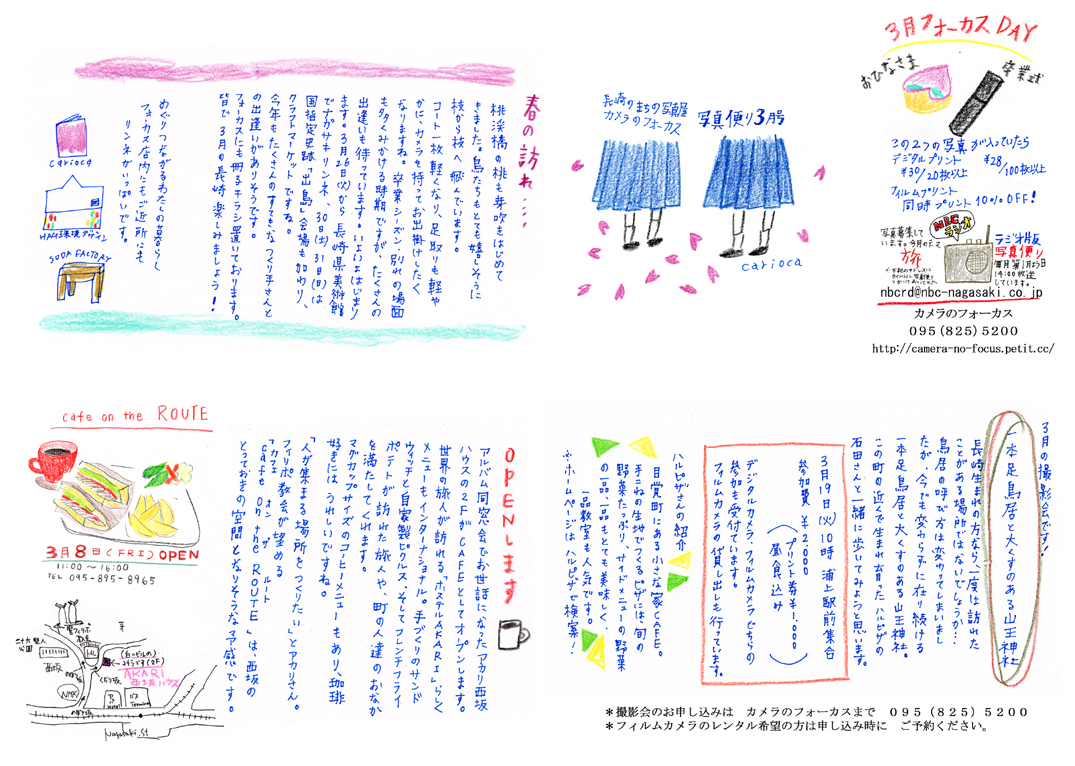 春の訪れ・・・・
桃渓橋の桃も芽吹もはじめて
きました。鳥たちもとても嬉しそうに
枝から枝へ飛んでいます。
コート一枚軽くなり、足取りも軽や
かに、カメラを持ってお出掛けしたく
なりますね。卒業シーズン・別れの場面
も多くみかける時期ですが、たくさんの
出逢いも待っています。いよいよはじまり
ます。3月26日(火)から長崎県美術館
でナガサキリンネ、30日(土)31日(日)は
国指定史跡「出島」会場も加わり、
クラフトマーケットですね。
今年もたくさんのすてきなつくり手さんと
の出逢いがありそうです。
フォーカスにも冊子&チラシ置いております。
皆で3月の長崎楽しみましょう!
めぐりつながるわたしの暮らし
フォーカス店内にもご近所にも
リンネがいっぱいです。
carioca
HAG環境デザイン
SODA FACTORY
長崎のまちの写真屋
カメラのフォーカス
写真便り3月号
carioca
3月フォーカスDAY
おひなさま
卒業式
この2つの写真が入っていたら
デジタルプリント ¥28/100枚以上
¥30/20枚以上
フィルムプリント
同時プリント10%OFF!
NBCラジオ
写真募集して
います。今月のテーマ
旅
ラジオ版
写真便り
14:00放送
しています。
nbcrd@nbc-nagasaki.co.jp
カメラのフォーカス
095(825)5200
http://camera-no-focus.petit.cc/
cafe on the ROUTE
3月8日(FRI)OPEN
11:00〜16:00
TEL 095-895-8965
二十六聖人
公園
西坂
NHK
AKARI
西坂ハウス
Nagasaki St
OPENします
アルバム同窓会でお世話になったアカリ西坂
ハウスの2FがCAFEとしてオープンします。
世界の旅人が訪れる「ホステルAKARI」らしく
メニューも、インターナショナル。手づくりのサンド
ウィッチと自家製ピクルス、そしてフレンチフライ
ポテトが訪れた旅人や、町の人達のおなか
を満たしてくれます。
マグカップサイズのコーヒーメニューもあり、珈琲
好きには、うれしいですね。
「人が集まる場所をつくりたい」とアカリさん。
フィリッポ教会が望める
「カフェ オン ザ ルート
cafe on the ROUTE」は、西坂の
とっておきの空間となりそうな予感です。
3月の撮影会です!
一本足鳥居と大くすのある山王神社
長崎生まれの方なら、一度は訪れた
ことがある場所ではないでしょうか…
鳥居の呼び方は変わってしまいまし
たが、今でも変わらずに在り続ける
一本足鳥居と大くすのある山王神社。
この町の近くで生まれ育ったハルピザの
石田さんと一緒に歩いてみようと思います。
3月19日(火)10時 浦上駅前集合
参加費 ¥2000
(プリント券¥1,000
昼食込み)
デジタルカメラ、フィルムカメラどちらの
参加も受付ています。
フィルムカメラの貸し出しも行っています。
ハルピザさんの紹介
目覚町にある小さな家CAFE。
手ごねの生地でつくるピザには、旬の
野菜たっぷり、サイドメニューの野菜
の一品、一品もとても美味しく、
一品教室も人気です。
※ホームページは ハルピザで検索!
*撮影会のお申し込みは カメラのフォーカスまで 095(825)5200
*フィルムカメラのレンタル希望の方は申し込み時に ご予約ください。